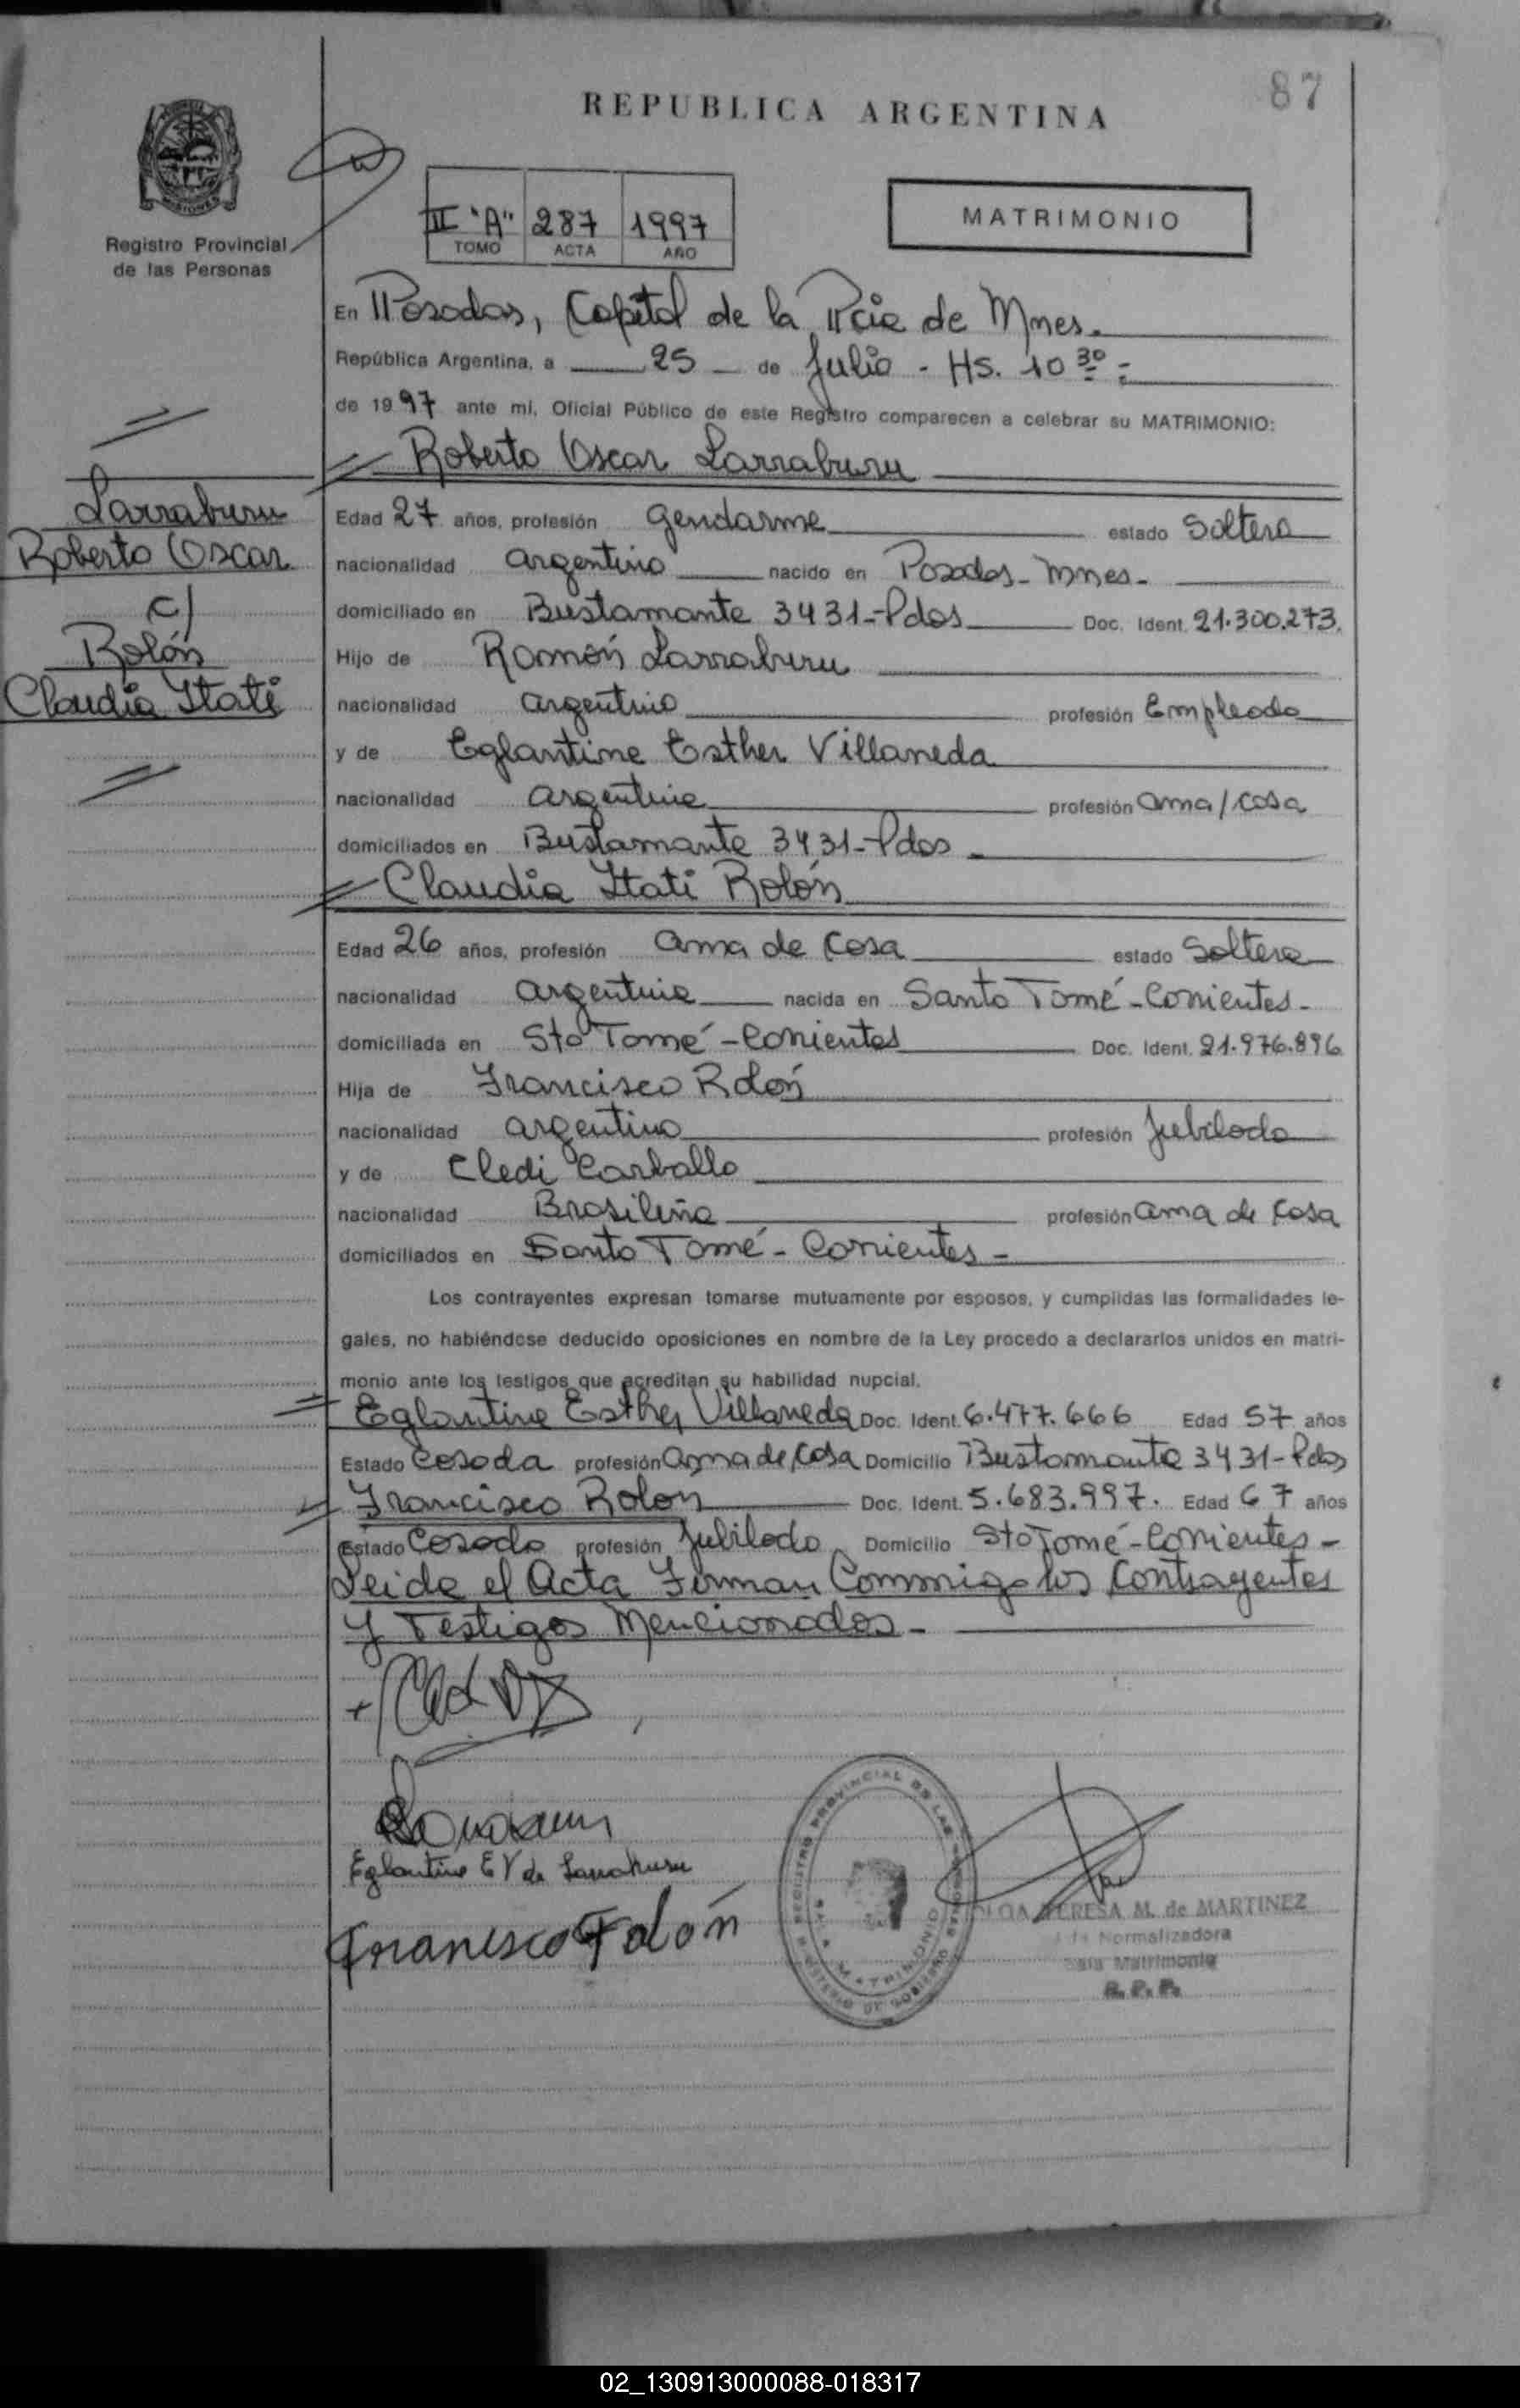 87
REPUBLICA ARGENTINA
MISIONES
Registro Provincial
de las Personas
II "A" 287 1997
TOMO ACTA AÑO
MATRIMONIO
En Posadas, Capital de la Pcia de Mnes.
República Argentina, a 25 de Julio - Hs. 10 30 -
de 1997 ante mi, Oficial Público de este Registro comparecen a celebrar su MATRIMONIO:
Roberto Oscar Larraburu
Larraburu
Roberto Oscar
c/
Rolón
Claudia Itati
Edad 27 años, profesión Gendarme estado Soltero
nacionalidad argentino nacido en Posadas - Mnes -
domiciliado en Bustamante 3431 - Pdas Doc. Ident. 21.300.273.
Hijo de Ramón Larraburu
nacionalidad argentino profesión Empleado
y de Eglantine Esther Villaneda
nacionalidad argentina profesión ama/casa
domiciliados en Bustamante 3431 - Pdas -
Claudia Itati Rolón
Edad 26 años, profesión ama de casa estado Soltera
nacionalidad argentina nacida en Santo Tomé - Corrientes -
domiciliada en Sto Tomé - Corrientes Doc. Ident. 21.976.896
Hija de Francisco Rolón
nacionalidad argentino profesión Jubilado
y de Cledi Carballo
nacionalidad Brasileña profesión ama de casa
domiciliados en Santo Tomé - Corrientes -
Los contrayentes expresan tomarse mutuamente por esposos, y cumplidas las formalidades le-
gales, no habiéndose deducido oposiciones en nombre de la Ley procedo a declararlos unidos en matri-
monio ante los testigos que acreditan su habilidad nupcial.
Eglantine Esther Villaneda Doc. Ident. 6.477.666 Edad 57 años
Estado Casada profesión Ama de Casa Domicilio Bustamante 3431 - Pdas
Francisco Rolon Doc. Ident. 5.683.997. Edad 67 años
Estado Casado profesión Jubilado Domicilio Sto Tomé - Corrientes -
Leida el Acta Firman Commigo los Contrayentes
y Testigos Mencionados -
Eglantine E V de Larraburu
Francisco Rolón
REGISTRO PROVINCIAL DE LAS PERSONAS
MATRIMONIO
OLGA TERESA M. de MARTINEZ
Normalizadora
Sala Matrimonio
R. P. P.
02_130913000088-018317